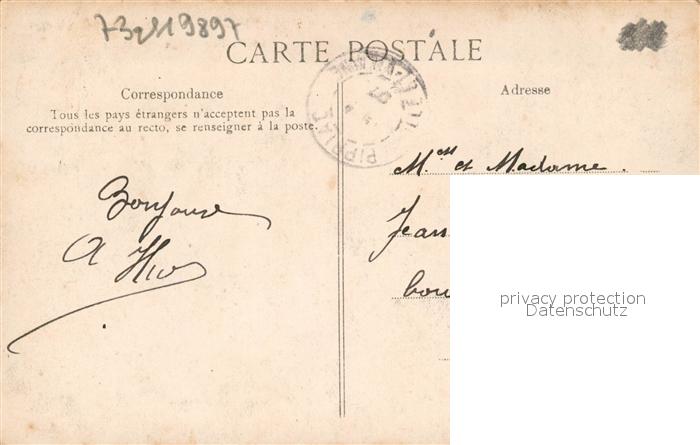 73y19897
CARTE POSTALE
Correspondance
Tous les pays étrangers n'acceptent pas la
correspondance au recto, se renseigner à la poste.
Adresse
PIPRIAC
ILLE-ET-VILAINE
M. et Madame
Jean
Bonjour
privacy protection
Datenschutz